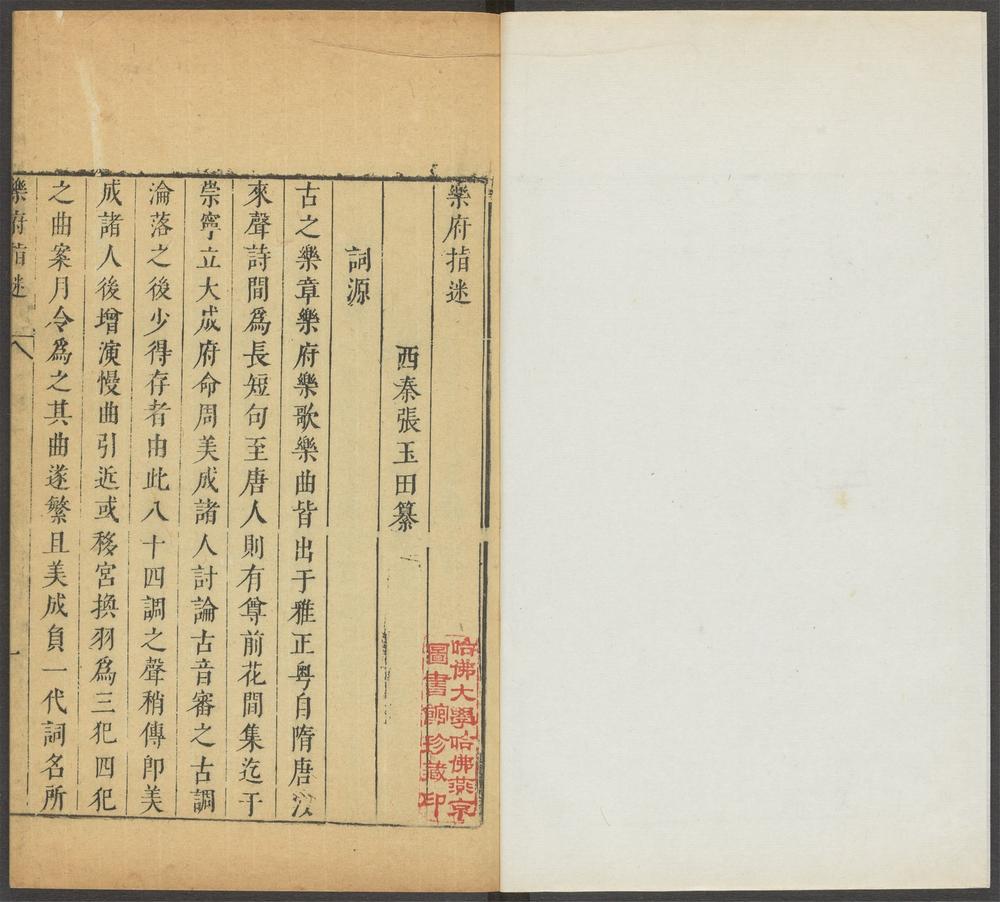 樂府指迷
西秦張玉田纂
詞源
古之樂章樂府樂歌樂曲皆出于雅正粵自隋唐以
來聲詩間爲長短句至唐人則有尊前花間集迄于
崇寧立大成府命周美成諸人討論古音審之古調
淪落之後少得存者由此八十四調之聲稍傳卽美
成諸人後增演慢曲引近或移宮換羽爲三犯四犯
之曲案月令爲之其曲遂繁且美成負一代詞名所
樂府指迷 八 一
哈佛大學哈佛燕京
圖書館珍藏印